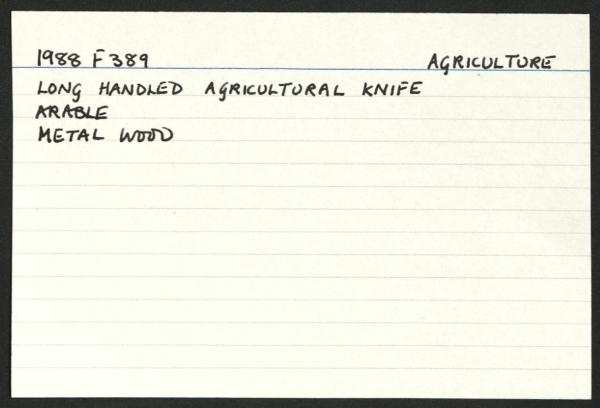 1988 F389 AGRICULTURE
LONG HANDLED AGRICULTURAL KNIFE
ARABLE
METAL WOOD